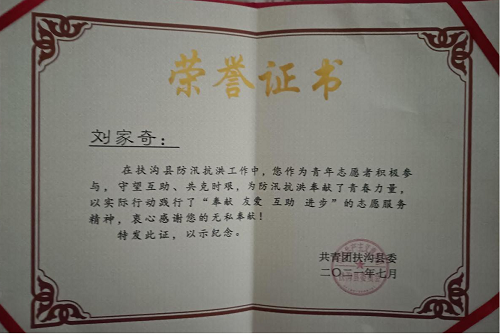 荣誉证书
刘家奇：
在扶沟县防汛抗洪工作中，您作为青年志愿者积极参
与，守望互助、共克时艰，为防汛抗洪奉献了青春力量，
以实际行动践行了“奉献 友爱 互助 进步”的志愿服务
精神，衷心感谢您的无私奉献！
特发此证，以示纪念。
共青团扶沟县委
二〇二一年七月